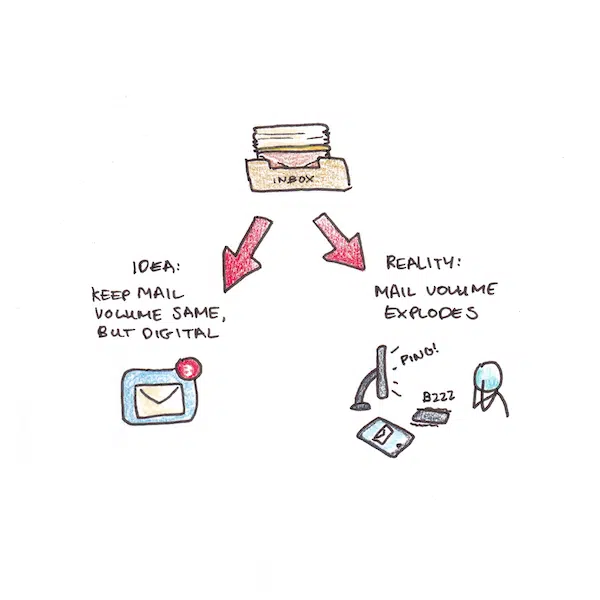 INBOX
IDEA:
KEEP MAIL
VOLUME SAME,
BUT DIGITAL
3
REALITY:
MAIL VOLUME
EXPLODES
PING!
BZZZ